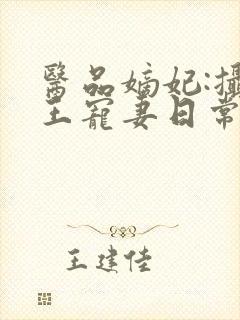 醫品嫡妃:攝
王寵妻日常
王建佳